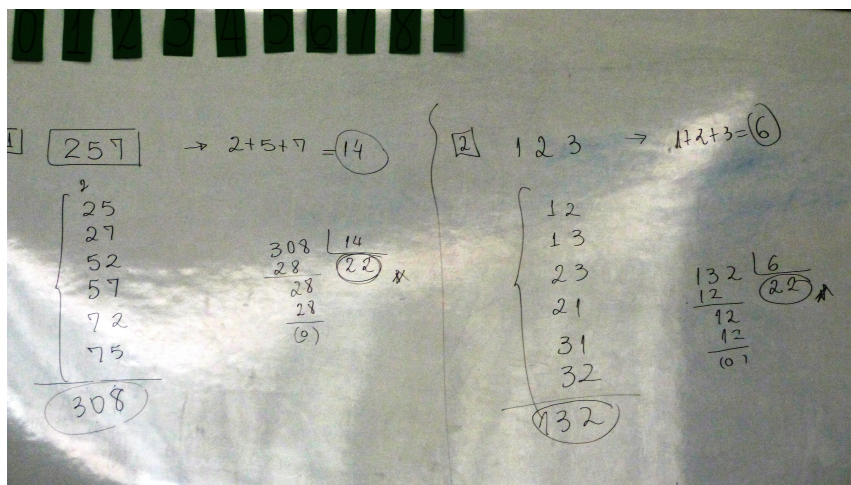 0 1 2 3 4 5 6 7 8 9
1 257 → 2+5+7 = 14
2
25
27
52
57
72
75
308
308 14
28 22
28
28
(0)
2 1 2 3 → 1+2+3=6
12
13
23
21
31
32
132
132 6
12 22
12
12
(0)